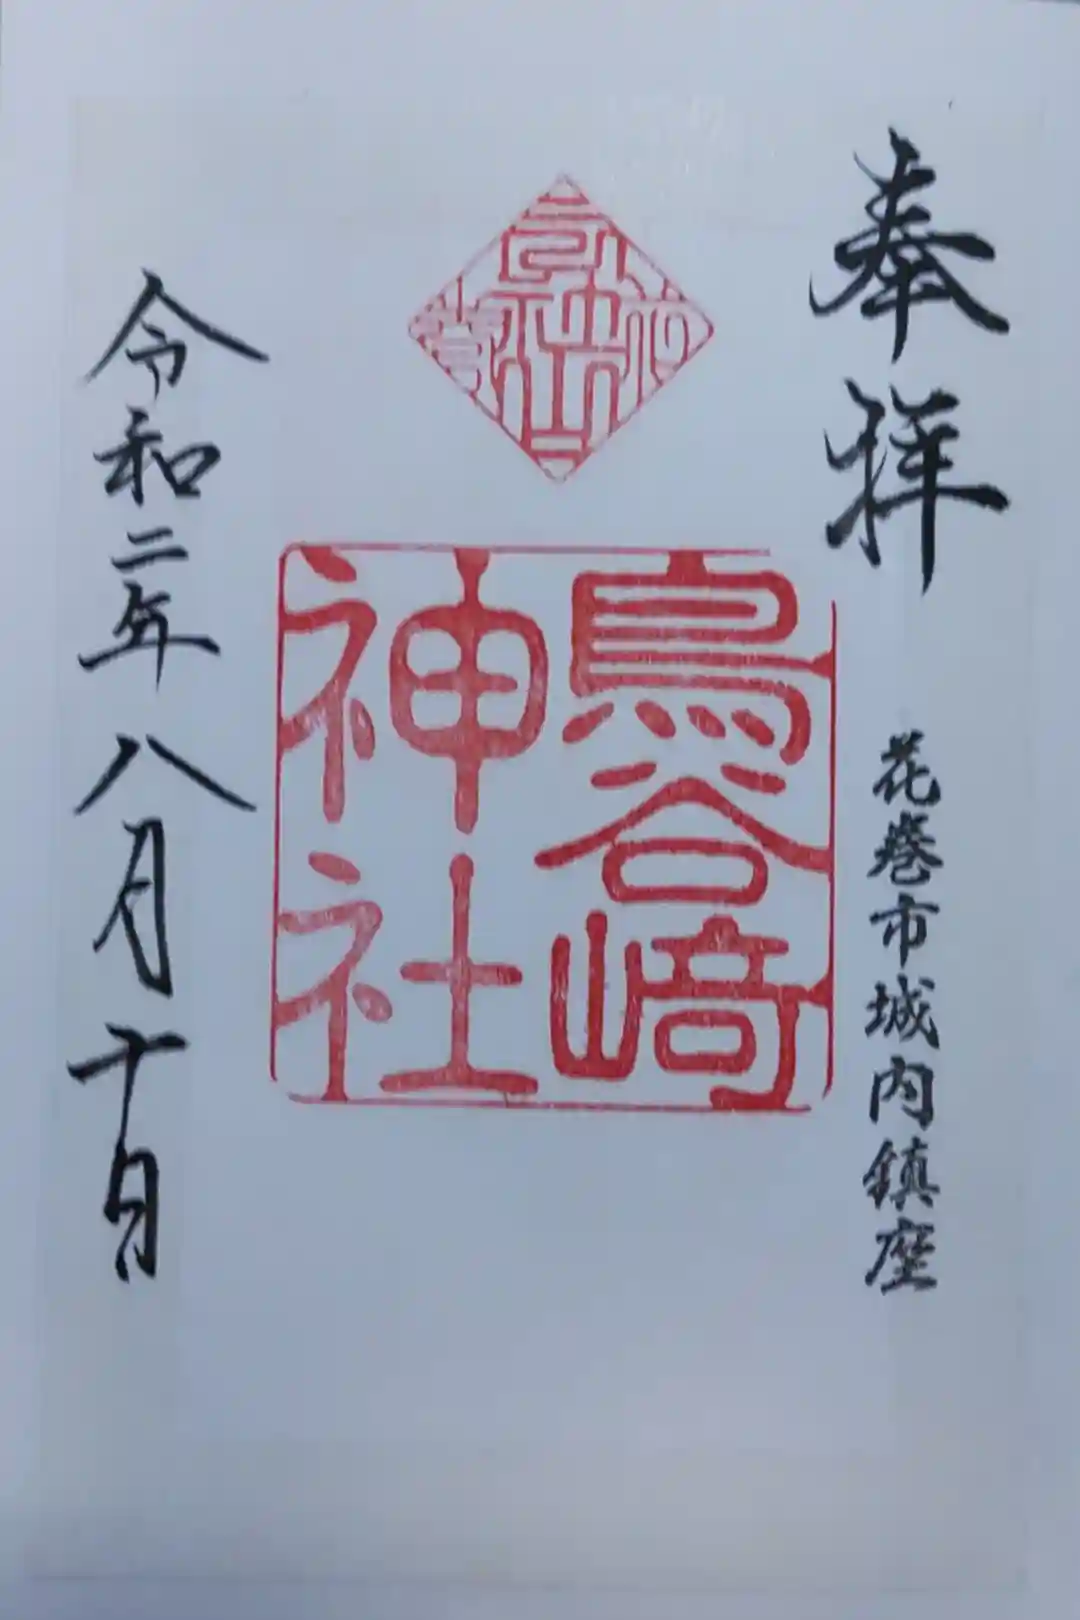 奉拝
花巻市城内鎮座
鳥谷崎
神社
令和二年八月十日